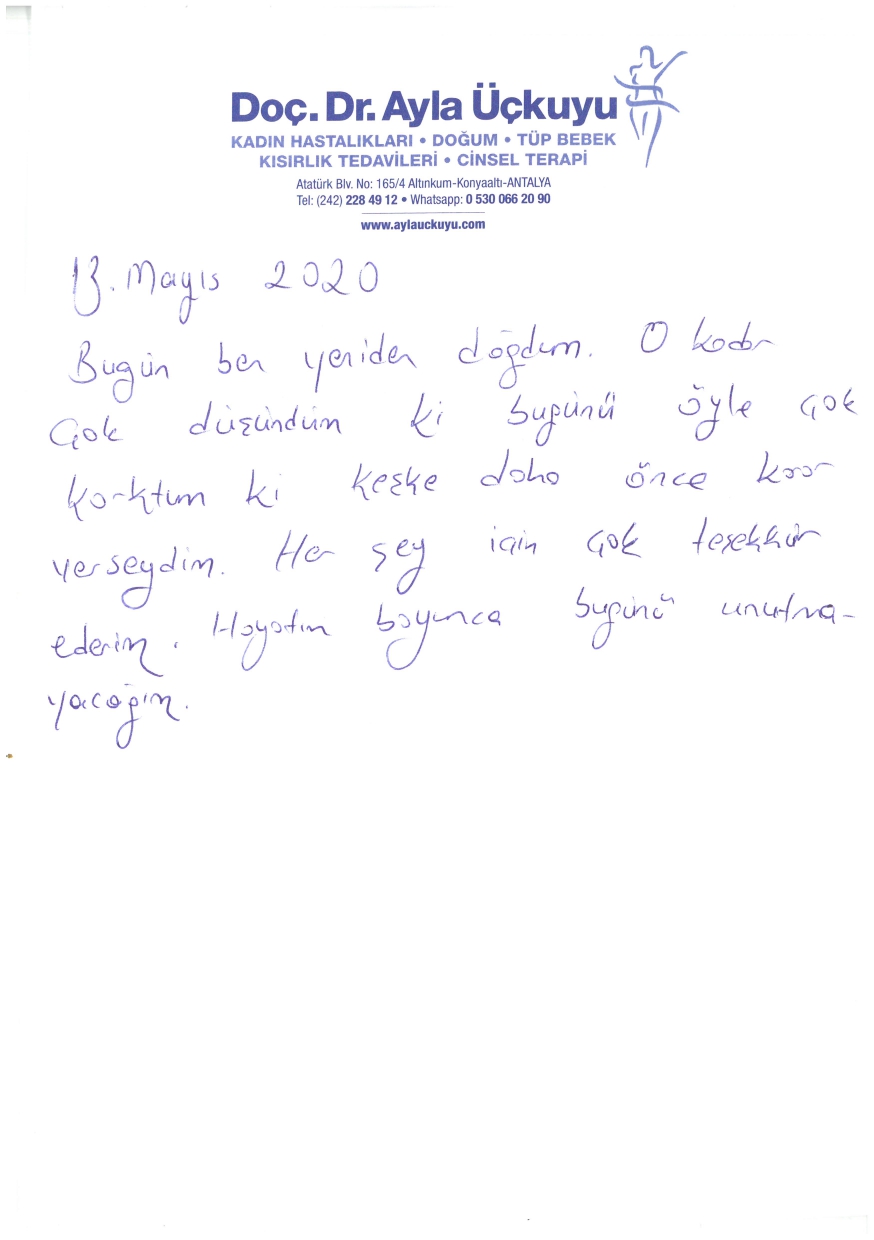 Doç. Dr. Ayla Üçkuyu
KADIN HASTALIKLARI • DOĞUM • TÜP BEBEK
KISIRLIK TEDAVİLERİ • CİNSEL TERAPİ
Atatürk Blv. No: 165/4 Altınkum-Konyaaltı-ANTALYA
Tel: (242) 228 49 12 • Whatsapp: 0 530 066 20 90
www.aylauckuyu.com
13. Mayıs 2020
Bugün ben yeniden doğdum. O kadar
Çok düşündüm ki bugünü öyle çok
korktum ki keşke daha önce karar
verseydim. Her şey için çok teşekkür
ederim. Hayatım boyunca bugünü unutma-
yacağım.